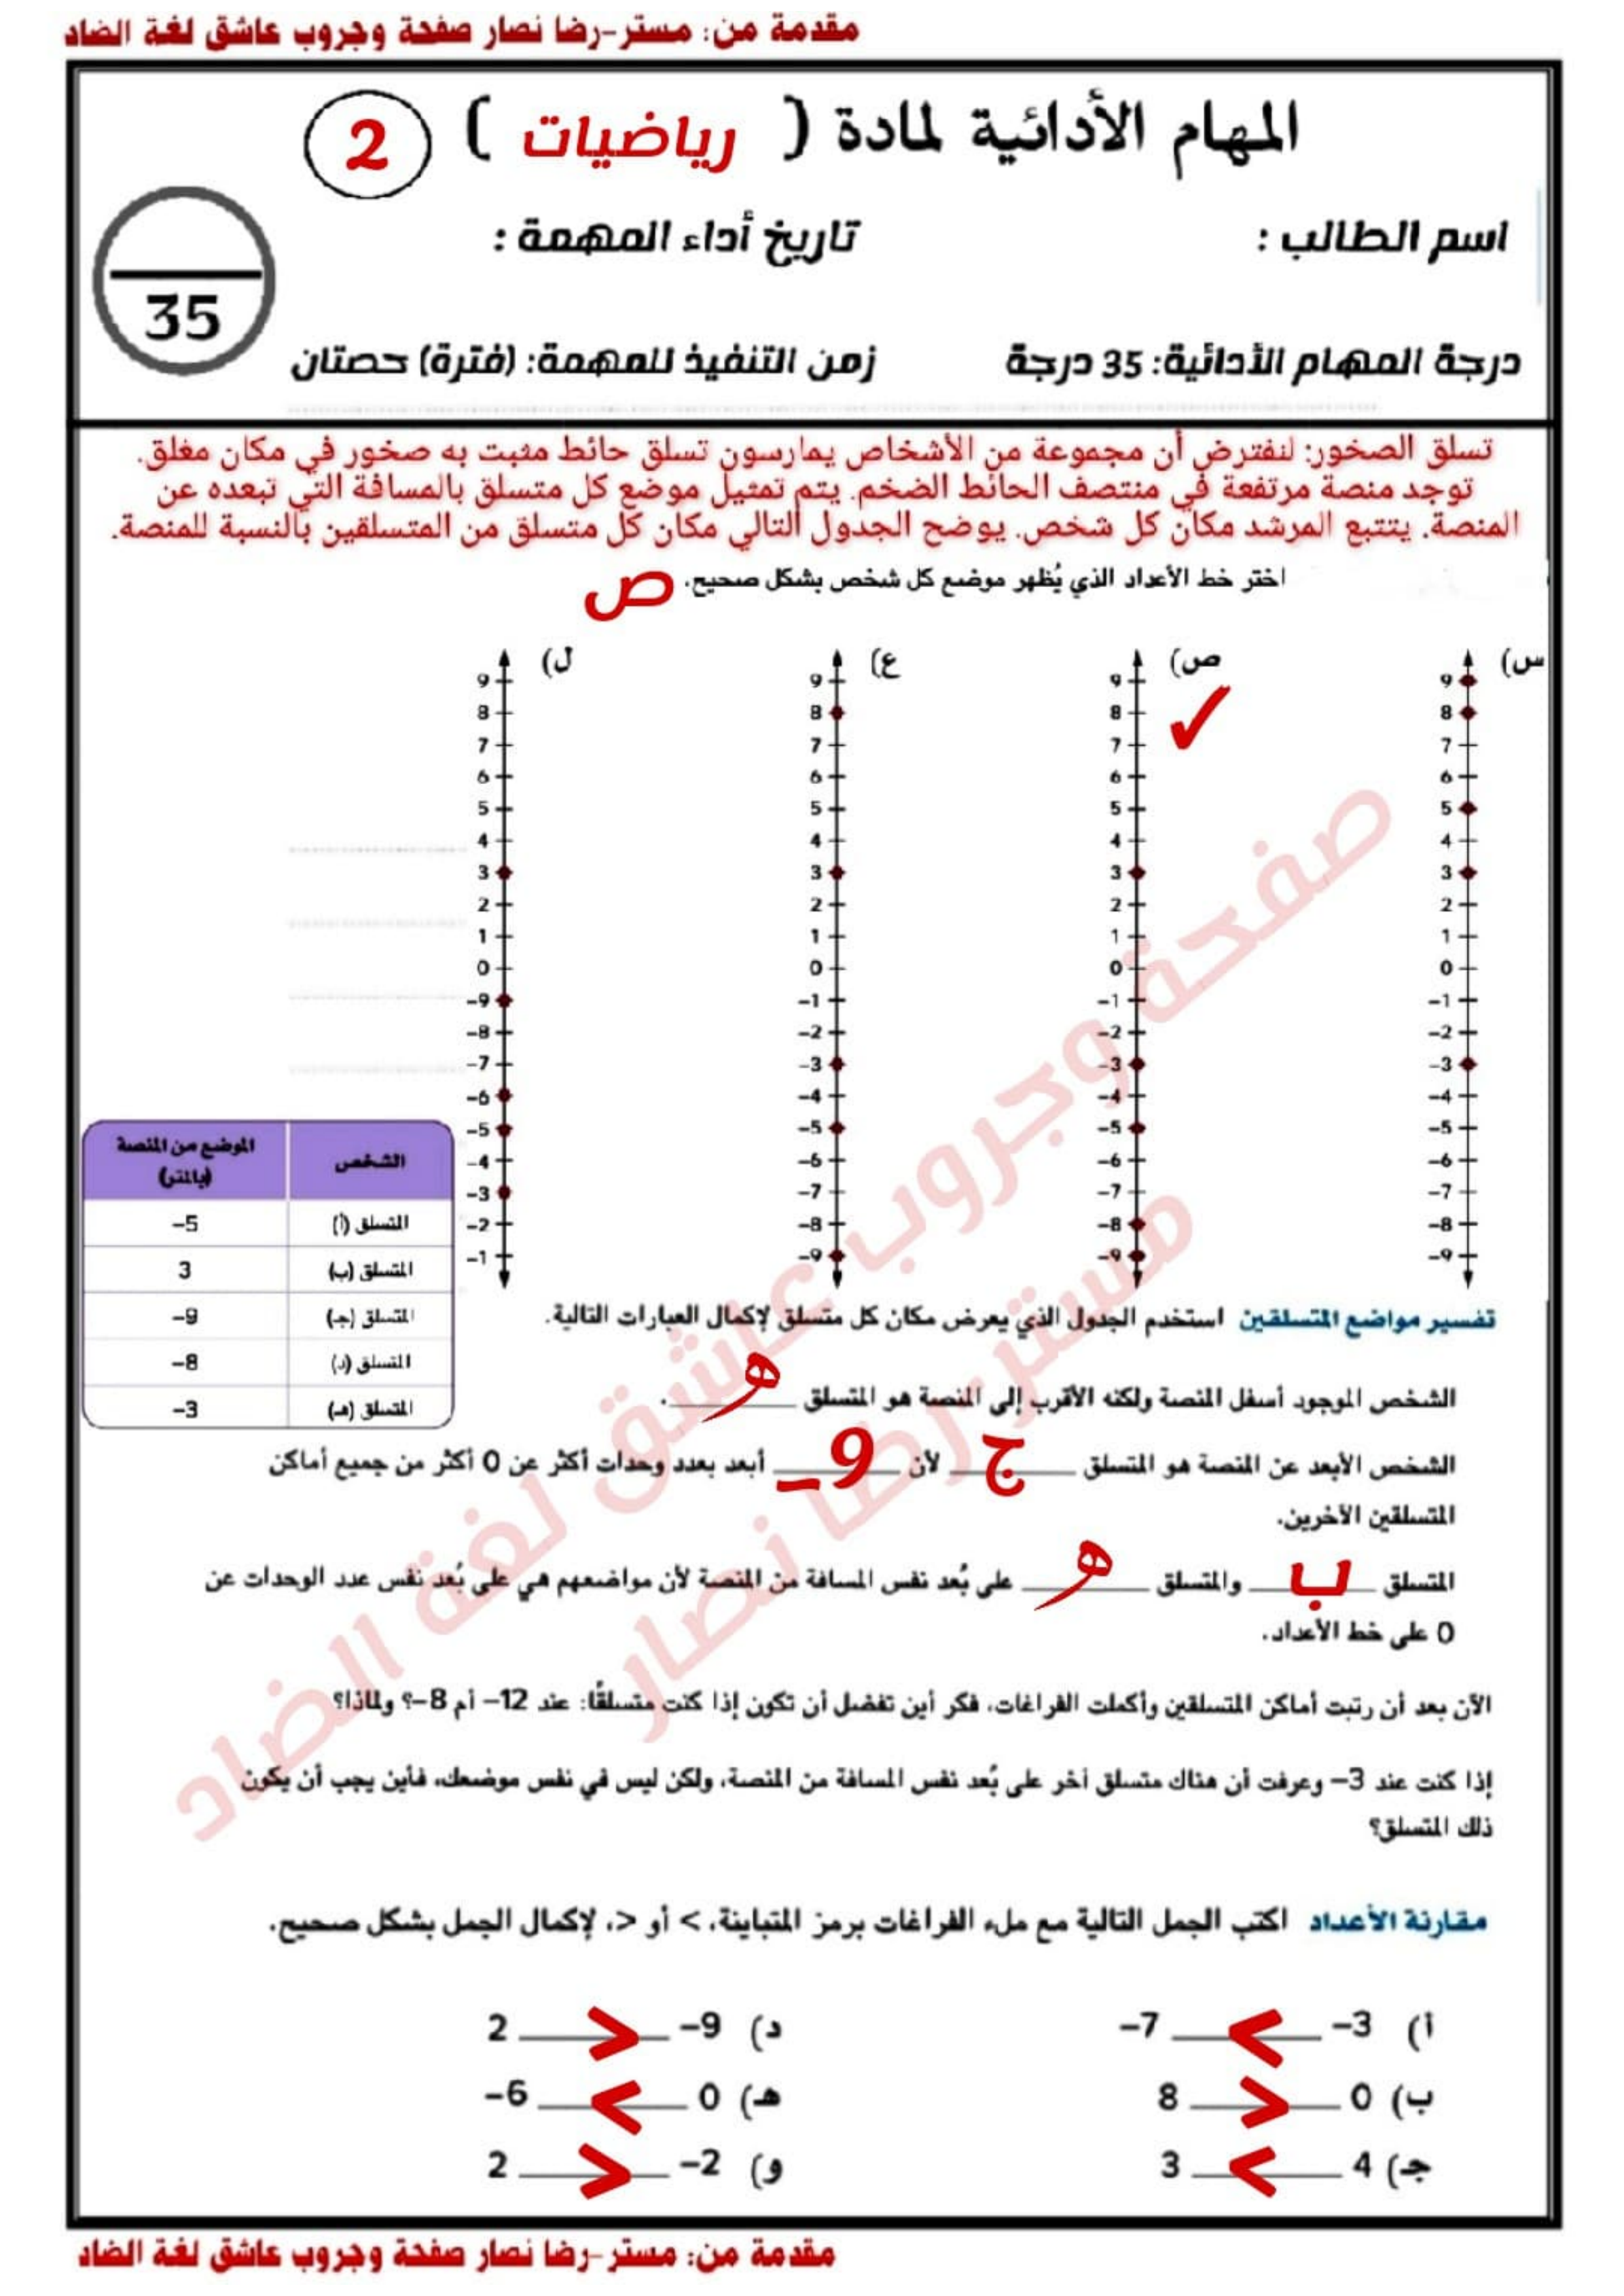 مقدمة من: مستر-رضا نصار صفحة وجروب عاشق لغة الضاد
المهام الأدائية لمادة ( رياضيات ) 2
اسم الطالب : تاريخ أداء المهمة :
35
درجة المهام الأدائية: 35 درجة زمن التنفيذ للمهمة: (فترة) حصتان
تسلق الصخور: لنفترض أن مجموعة من الأشخاص يمارسون تسلق حائط مثبت به صخور في مكان مغلق.
توجد منصة مرتفعة في منتصف الحائط الضخم. يتم تمثيل موضع كل متسلق بالمسافة التي تبعده عن
المنصة. يتتبع المرشد مكان كل شخص. يوضح الجدول التالي مكان كل متسلق من المتسلقين بالنسبة للمنصة.
اختر خط الأعداد الذي يُظهر موضع كل شخص بشكل صحيح. ص
س) ص) ع) ل)
9 9 9 9
8 8 8 8
✓
7 7 7 7
6 6 6 6
5 5 5 5
4 4 4 4
3 3 3 3
2 2 2 2
1 1 1 1
0 0 0 0
-1 -1 -1 -9
-2 -2 -2 -8
-3 -3 -3 -7
-4 -4 -4 -6
-5 -5 -5 -5
-6 -6 -6 -4
-7 -7 -7 -3
-8 -8 -8 -2
-9 -9 -9 -1
الشخص الموضع من المنصة (بالمتر)
المتسلق (أ) -5
المتسلق (ب) 3
المتسلق (جـ) -9
المتسلق (د) -8
المتسلق (هـ) -3
تفسير مواضع المتسلقين استخدم الجدول الذي يعرض مكان كل متسلق لإكمال العبارات التالية.
الشخص الموجود أسفل المنصة ولكنه الأقرب إلى المنصة هو المتسلق هـ.
الشخص الأبعد عن المنصة هو المتسلق ج لأن -9 أبعد بعدد وحدات أكثر عن 0 أكثر من جميع أماكن
المتسلقين الآخرين.
المتسلق ب والمتسلق هـ على بُعد نفس المسافة من المنصة لأن مواضعهم هي على بُعد نفس عدد الوحدات عن
0 على خط الأعداد.
الآن بعد أن رتبت أماكن المتسلقين وأكملت الفراغات، فكر أين تفضل أن تكون إذا كنت متسلقًا: عند 12- أم 8-؟ ولماذا؟
إذا كنت عند 3- وعرفت أن هناك متسلق آخر على بُعد نفس المسافة من المنصة، ولكن ليس في نفس موضعك، فأين يجب أن يكون
ذلك المتسلق؟
مقارنة الأعداد اكتب الجمل التالية مع ملء الفراغات برمز المتباينة، > أو <، لإكمال الجمل بشكل صحيح.
أ) -3 < -7 د) -9 > 2
ب) 0 > 8 هـ) 0 < -6
جـ) 4 < 3 و) -2 > 2
صفحة وجروب عاشق لغة الضاد
مستر-رضا نصار
مقدمة من: مستر-رضا نصار صفحة وجروب عاشق لغة الضاد